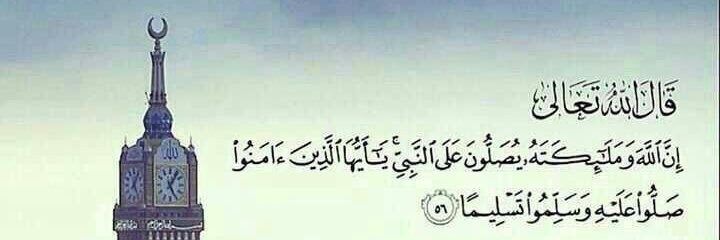 قَالَ اللَّهُ تَعَالَى
إِنَّ ٱللَّهَ وَمَلَٰٓئِكَتَهُۥ يُصَلُّونَ عَلَى ٱلنَّبِيِّۚ يَٰٓأَيُّهَا ٱلَّذِينَ ءَامَنُوا۟
صَلُّوا۟ عَلَيْهِ وَسَلِّمُوا۟ تَسْلِيمًا ٥٦
الله